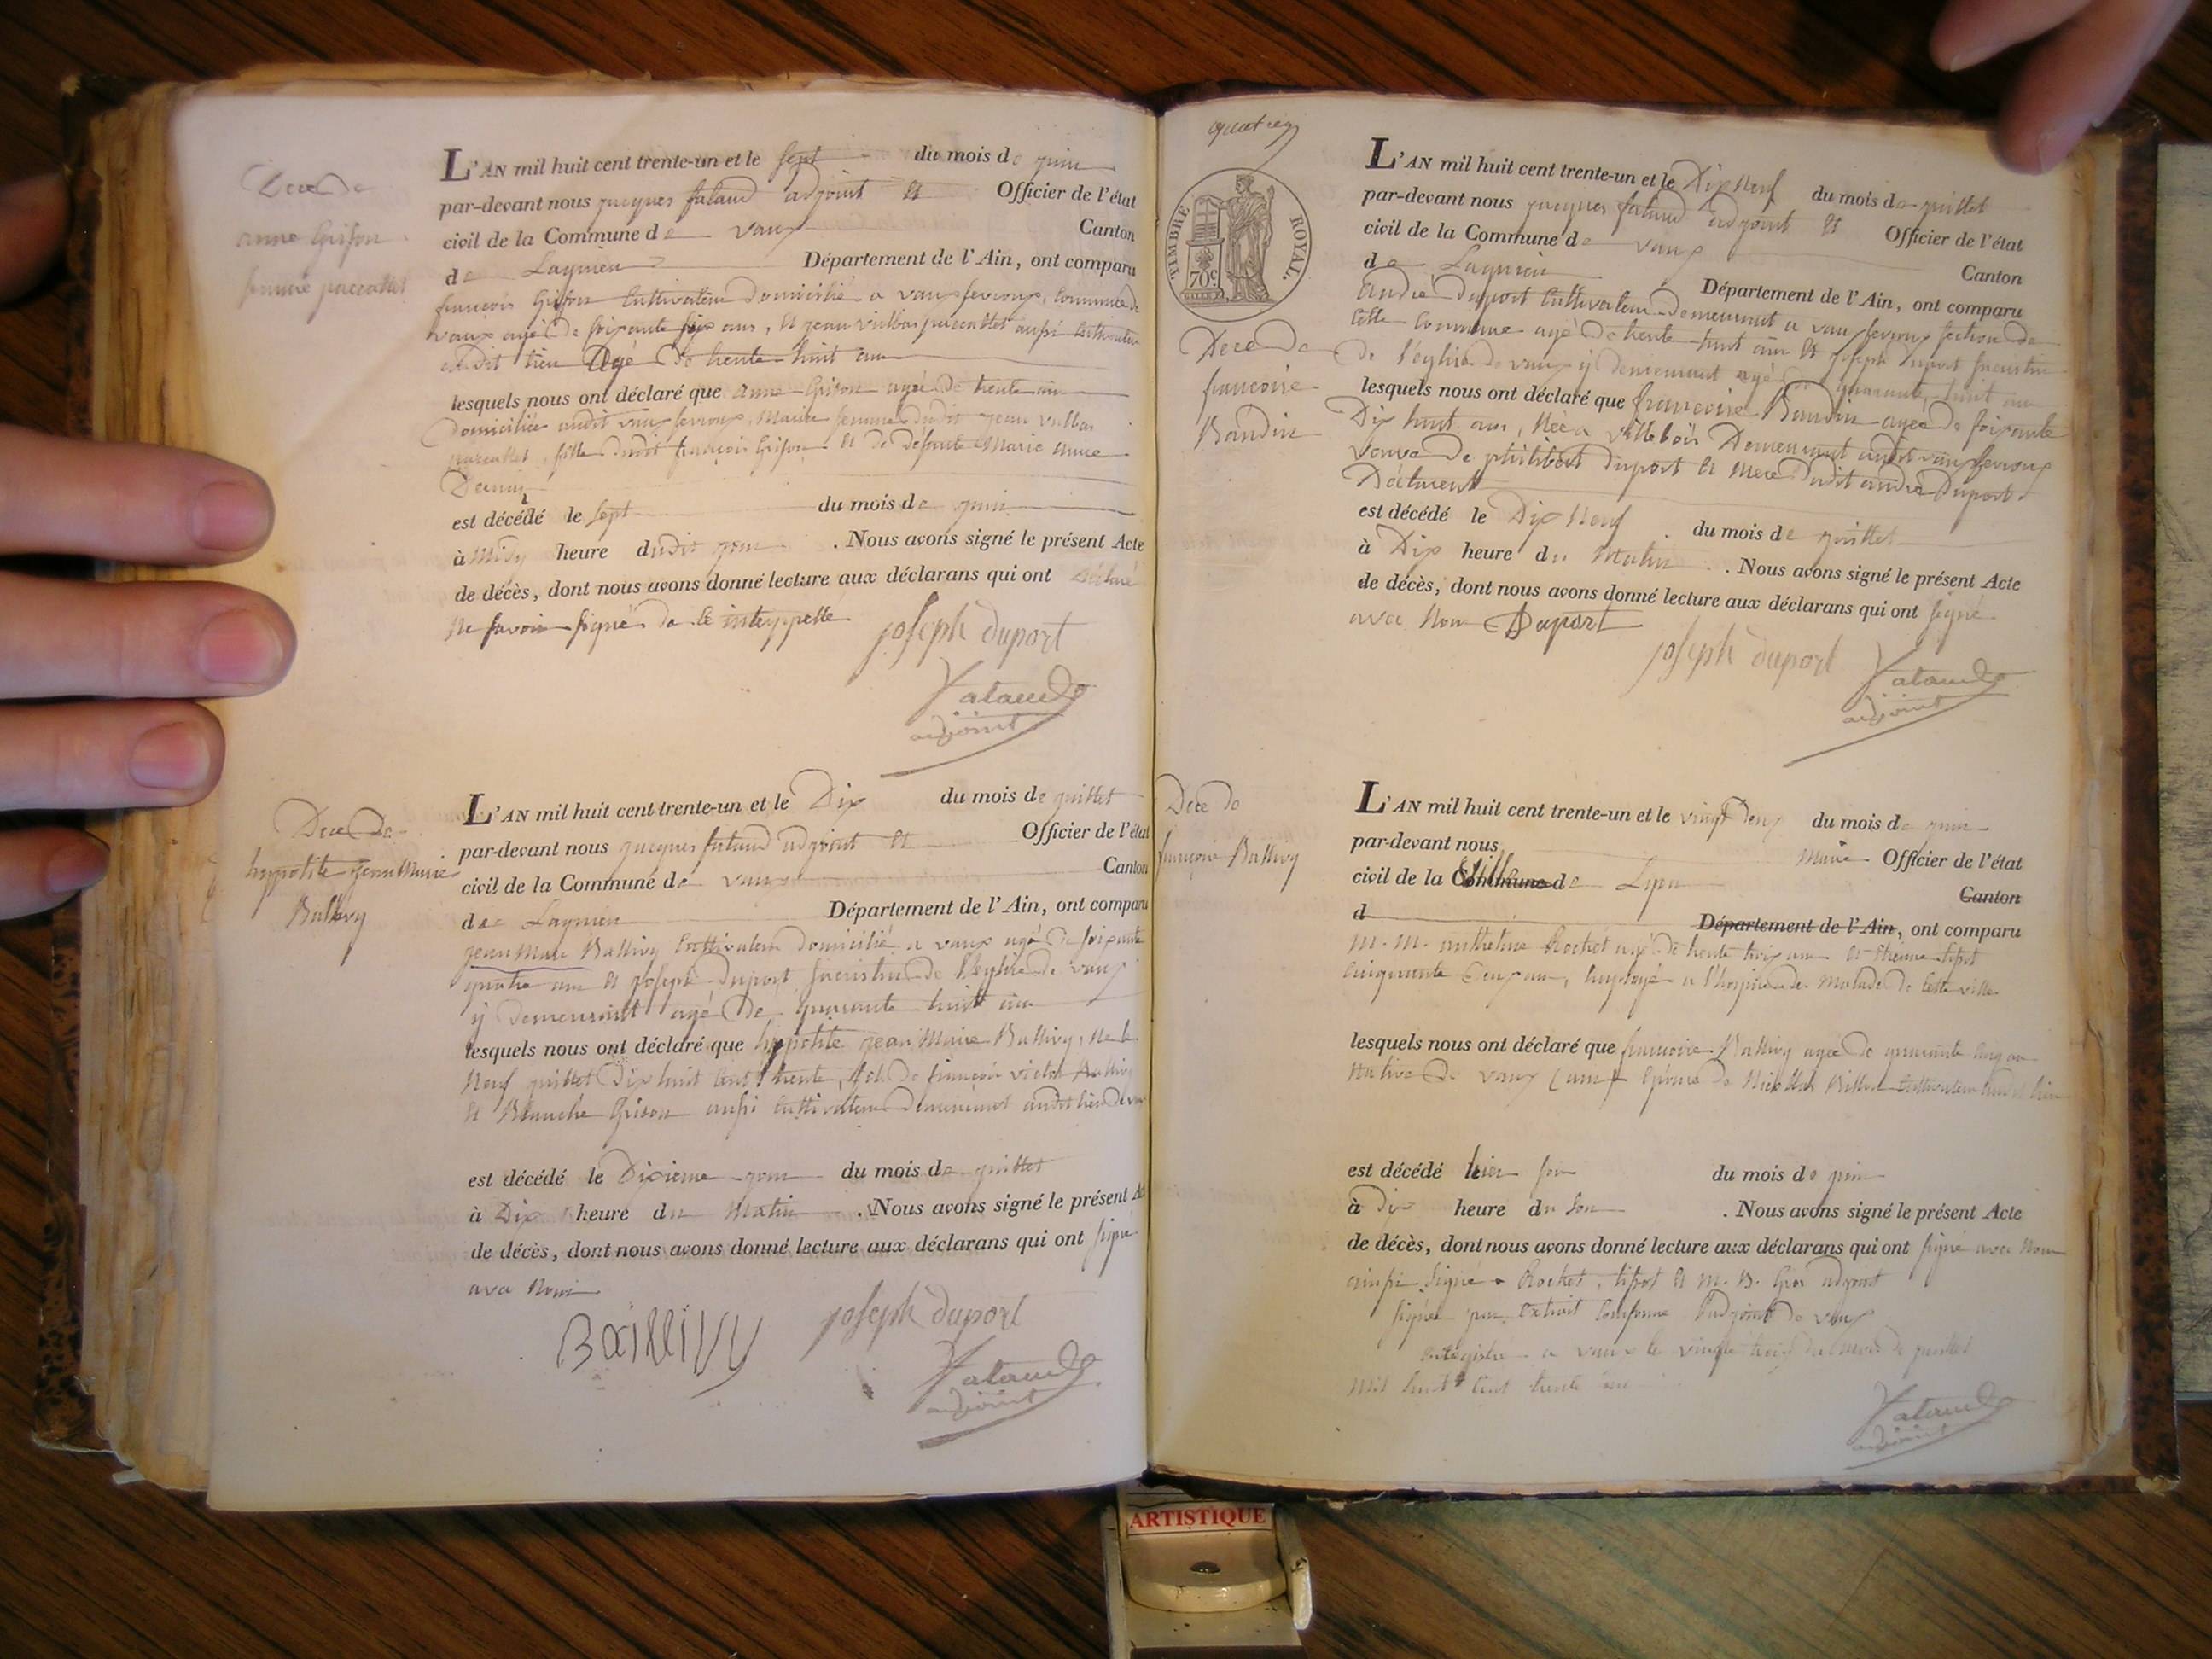 Dece de
anne Grison
femme paccallet
L'AN mil huit cent trente-un et le sept du mois de juin
par-devant nous jacques falaud adjoint et Officier de l'état
civil de la Commune de vaux Canton
de Lagnieu Département de l'Ain, ont comparu
françois Grison Cultivateur domicilié a vaux fevroux, commune de
vaux agé de soixante six ans, et jean vulbas paccallet aussi cultivateur
audit lieu Agé de trente huit ans
lesquels nous ont déclaré que anne Grison agée de trente ans
domiciliée audit vaux fevroux, Mariée femme dudit jean vulbas
paccallet, fille dudit françois Grison et de defunte Marie anne
est décédé le sept du mois de juin
à Midy heure dudit jour . Nous avons signé le présent Acte
de décès, dont nous avons donné lecture aux déclarans qui ont déclaré
ne savoir signé de ce interppellé
joseph duport
falaud
adjoint
Dece de
hyppolite jean Marie
Ballivy
L'AN mil huit cent trente-un et le Dix du mois de juillet
par-devant nous jacques falaud adjoint et Officier de l'état
civil de la Commune de vaux Canton
de Lagnieu Département de l'Ain, ont comparu
jean Marie Ballivy Cultivateur domicilié a vaux agé de soixante
quatre ans et joseph duport sacristin de l'eglise de vaux
y demeurant agé de quarante huit ans
lesquels nous ont déclaré que hyppolite jean Marie Ballivy, né le
Neuf juillet Dix huit cent trente, fils de françois victor Ballivy
et Blanche Grison aussi cultivateur demeurant audit lieu de vaux
est décédé le Dixieme jour du mois de juillet
à Dix heure du Matin . Nous avons signé le présent Ac
de décès, dont nous avons donné lecture aux déclarans qui ont signé
avec Nous
Ballivy
joseph duport
falaud
adjoint
TIMBRE ROYAL.
70c
Dece de
francoise
Baudin
L'AN mil huit cent trente-un et le Dix Neuf du mois de juillet
par-devant nous jacques falaud adjoint et Officier de l'état
civil de la Commune de vaux Canton
de Lagnieu Département de l'Ain, ont comparu
André duport Cultivateur demeurant a vaux fevroux section de
cette Commune agé de trente huit ans et joseph duport sacristin
de l'eglise de vaux y demeurant agé de quarante huit ans
lesquels nous ont déclaré que francoise Baudin agée de soixante
Dix huit ans, Née a villebois Demeurant audit vaux fevroux
veuve de philibert duport et Mere dudit andré Duport
est décédé le Dix Neuf du mois de juillet
à Dix heure du Matin . Nous avons signé le présent Acte
de décès, dont nous avons donné lecture aux déclarans qui ont signé
avec Nous Duport
joseph duport
falaud
adjoint
Dece de
francoise Ballivy
L'AN mil huit cent trente-un et le vingt Deux du mois de juin
par-devant nous Maire Officier de l'état
civil de la Commune ville de Lyon Canton
d Département de l'Ain, ont comparu
M. M. anthelme Rochet agé de trente trois ans et Etienne
cinquante Deux ans, Employés a l'hospice des Malades de cette ville
lesquels nous ont déclaré que francoise Ballivy agée de quarante cinq ans
Native de vaux (ain) Epouse de Nicollas Cultivateur
est décédé hier soir du mois de juin
à Dix heure du Soir . Nous avons signé le présent Acte
de décès, dont nous avons donné lecture aux déclarans qui ont signé avec Nous
ainsi Signé Rochet, et M. B. Gros adjoint
Signée pour extrait Conforme L'adjoint de vaux
Enregistre a vaux le vingt trois du Mois de juillet
Mil huit Cent trente un
falaud
adjoint
ARTISTIQUE